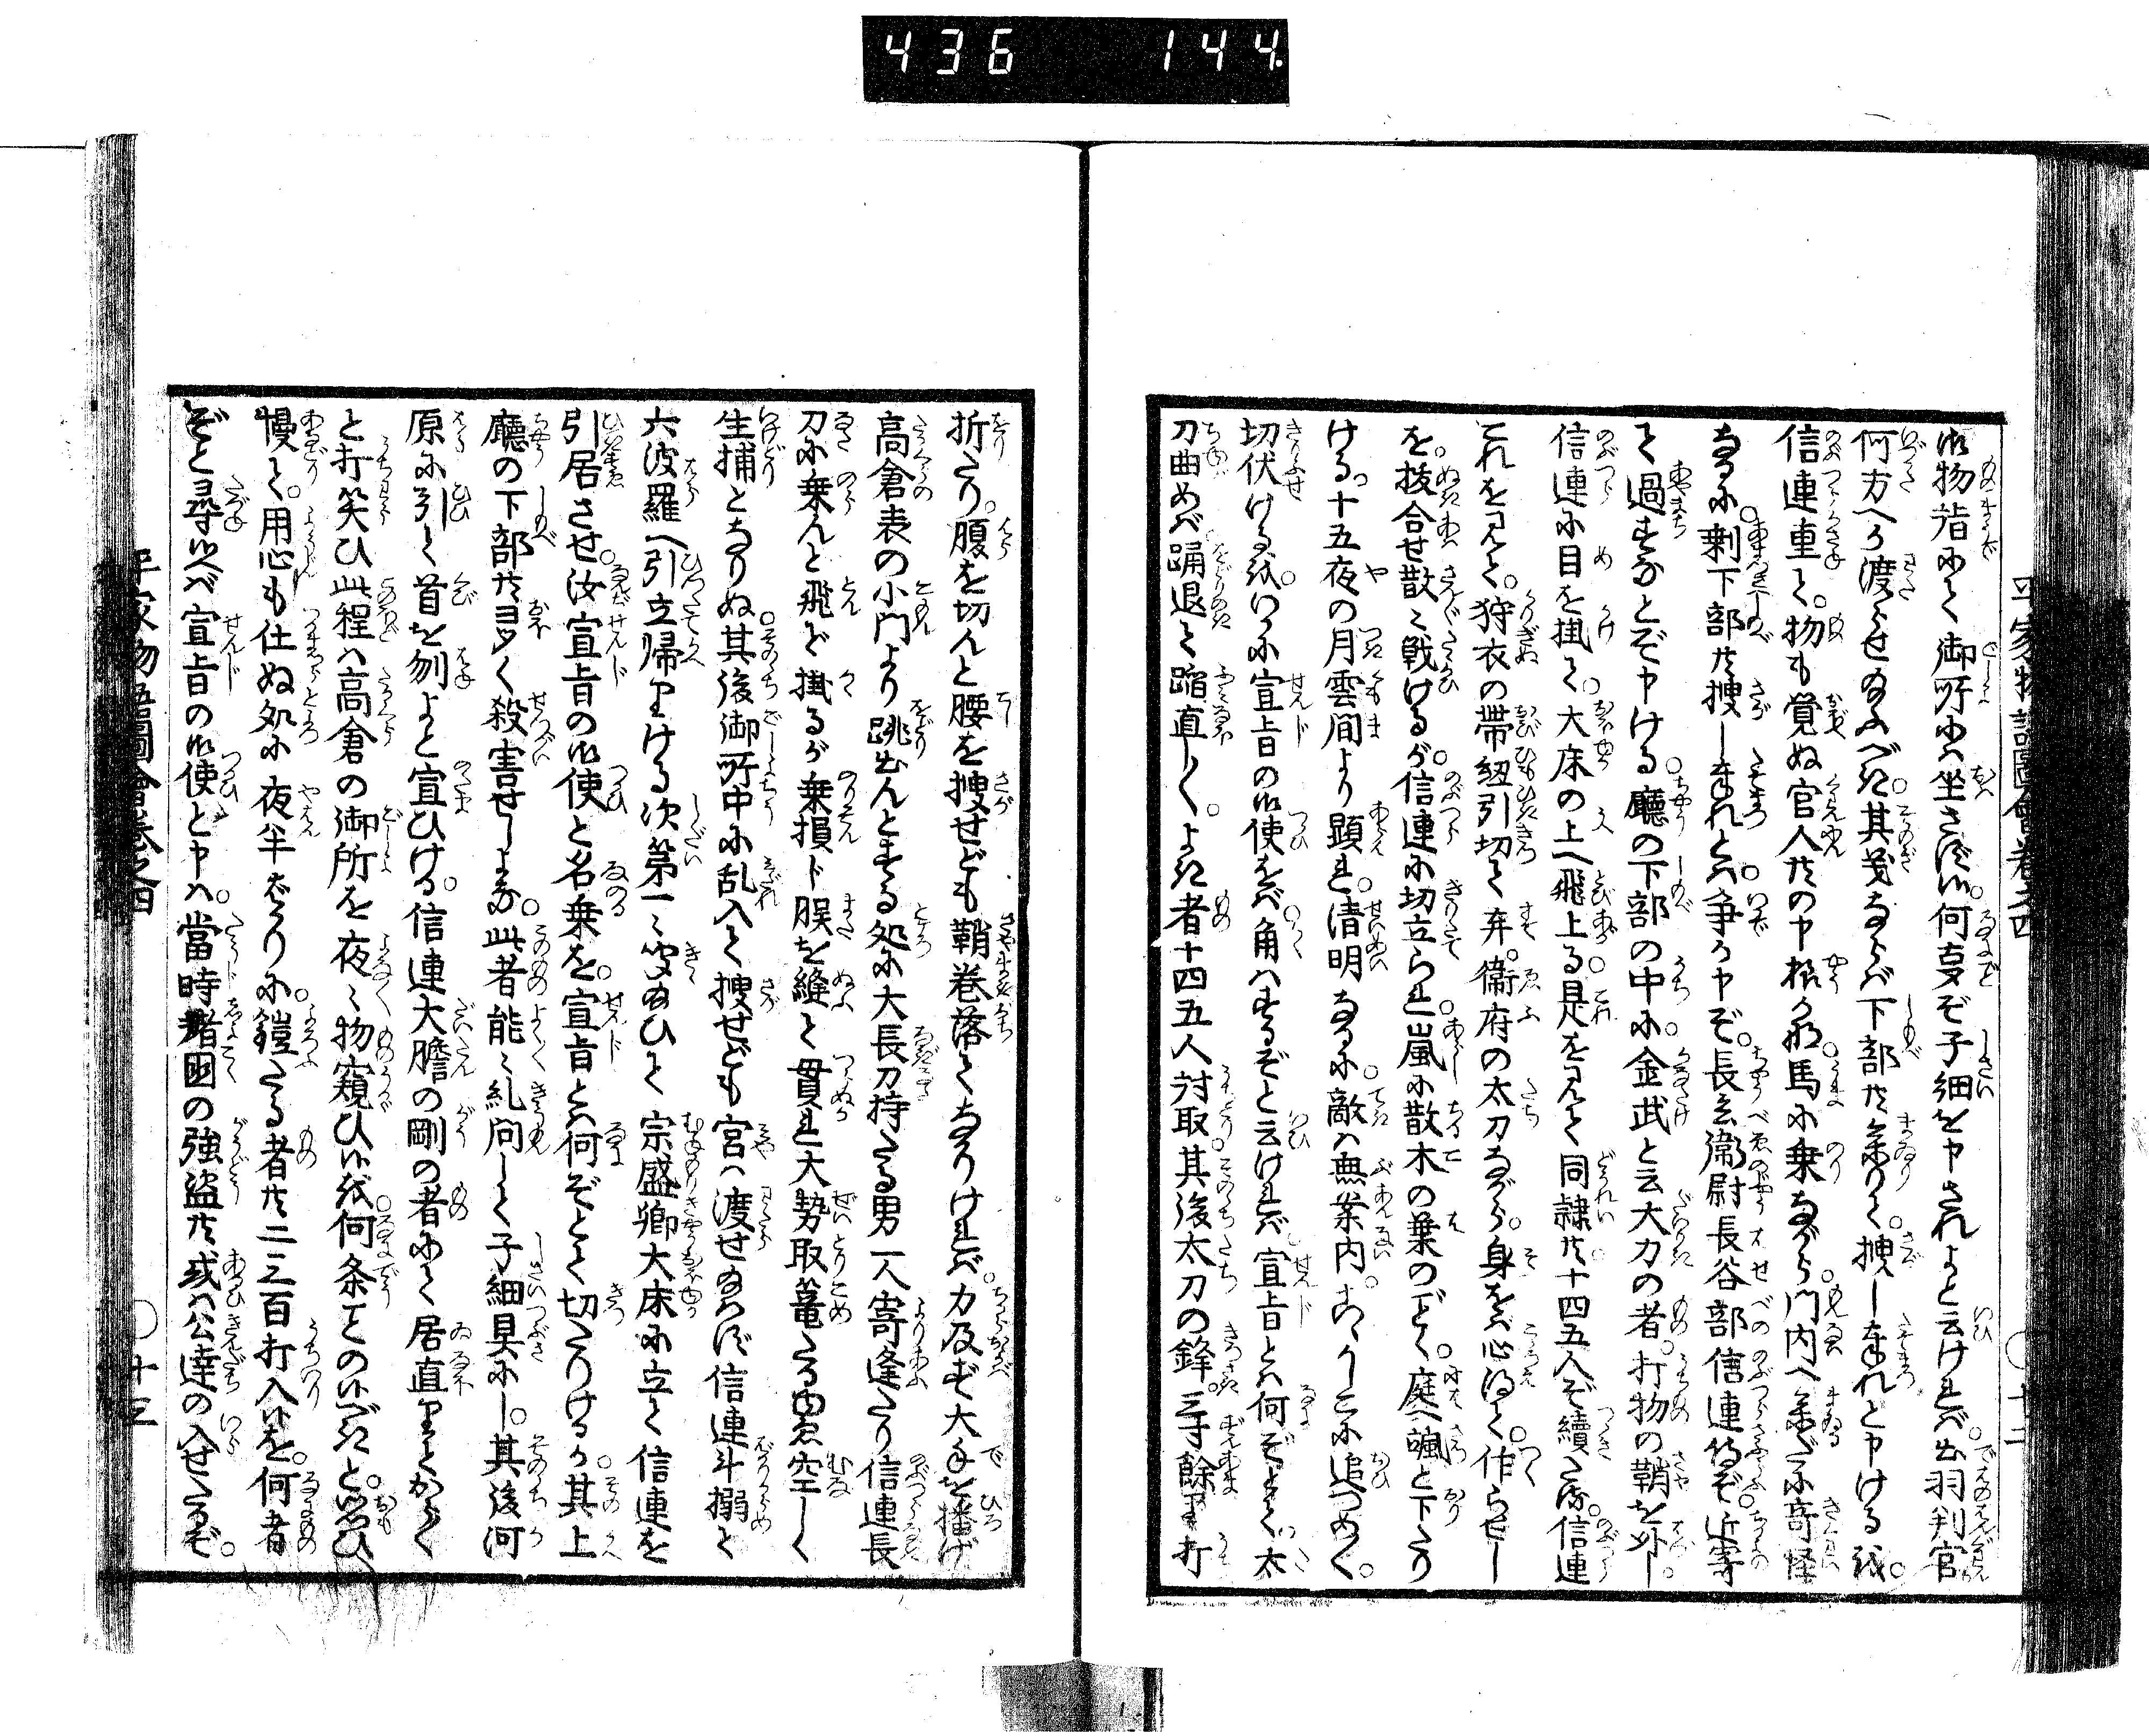 436 144.
平家物語圖會巻之四 ○十二
御物詣にて御所には坐さず候。何事ぞ子細を申されよと云ければ。出羽判官
何方へか渡らせ給ふべき。其義ならば下部共参りて。捜し奉れと申ける を。
信連重て。物も覚ぬ官人共の申様かな。馬に乗ながら。門内へ参だに奇怪
なるに。剰下部共捜し奉れとは。争か申ぞ。長兵衛尉長谷部信連候ぞ。近寄
て過すなとぞ申ける。廳の下部の中に。金武と云大力の者。打物の鞘を外し。
信連に目を掛て。大床の上へ飛上る。是を見て同隷共十四五人ぞ續たる。信連
これを見て。狩衣の帯紐引切て弃。衞府の太刀ながら。身をば心得て。作らせし
を。抜合せ散々戦けるが。信連に切立られ嵐に散木の葉のごとく。庭へ颯と下たり
ける。十五夜の月雲間より顕れ。清明なるに。敵は無案内。こゝかしこに追つめて。
切伏ける を。いかに宣旨の御使をば角はするぞと云ければ。宣旨とは何ぞとて。太
刀曲めば踊退て踏直して。よき者十四五人討取。其後太刀の鋒。三寸餘り打
折たり。腹を切んと腰を捜せども鞘巻落てなかりければ。力及ばず大手を播げ
高倉表の小門より跳出んとする処に大長刀持たる男一人寄逢たり信連長
刀に乗んと飛で掛るが乗損じ股を縫て貫れ大勢取篭たる内空しく
生捕となりぬ。其後御所中に乱入て捜せども宮は渡せ給はず信連斗搦て
六波羅へ引立帰りける次第一々聞給ひて宗盛卿大床に立て信連を
引居させ。汝宣旨の御使と名乗を。宣旨とは何ぞとて切たりけるか。其上
廳の下部共多く殺害せしよな。此者能々糺問して子細具にし。其後河
原に引て首を刎よと宣ひける。信連大膽の剛の者にて居直りてからからく
と打笑ひ此程は高倉の御所を夜々物窺ひ候を。何条ことの候べきと。思ひ
慢て。用心も仕ぬ処に夜半ばかりに。鎧たる者共二三百打入候を。何者
ぞと尋候へば宣旨の御使と申は。當時諸国の強盗共或は公達の入せたるぞ。
平家物語圖會巻之四 ○十三